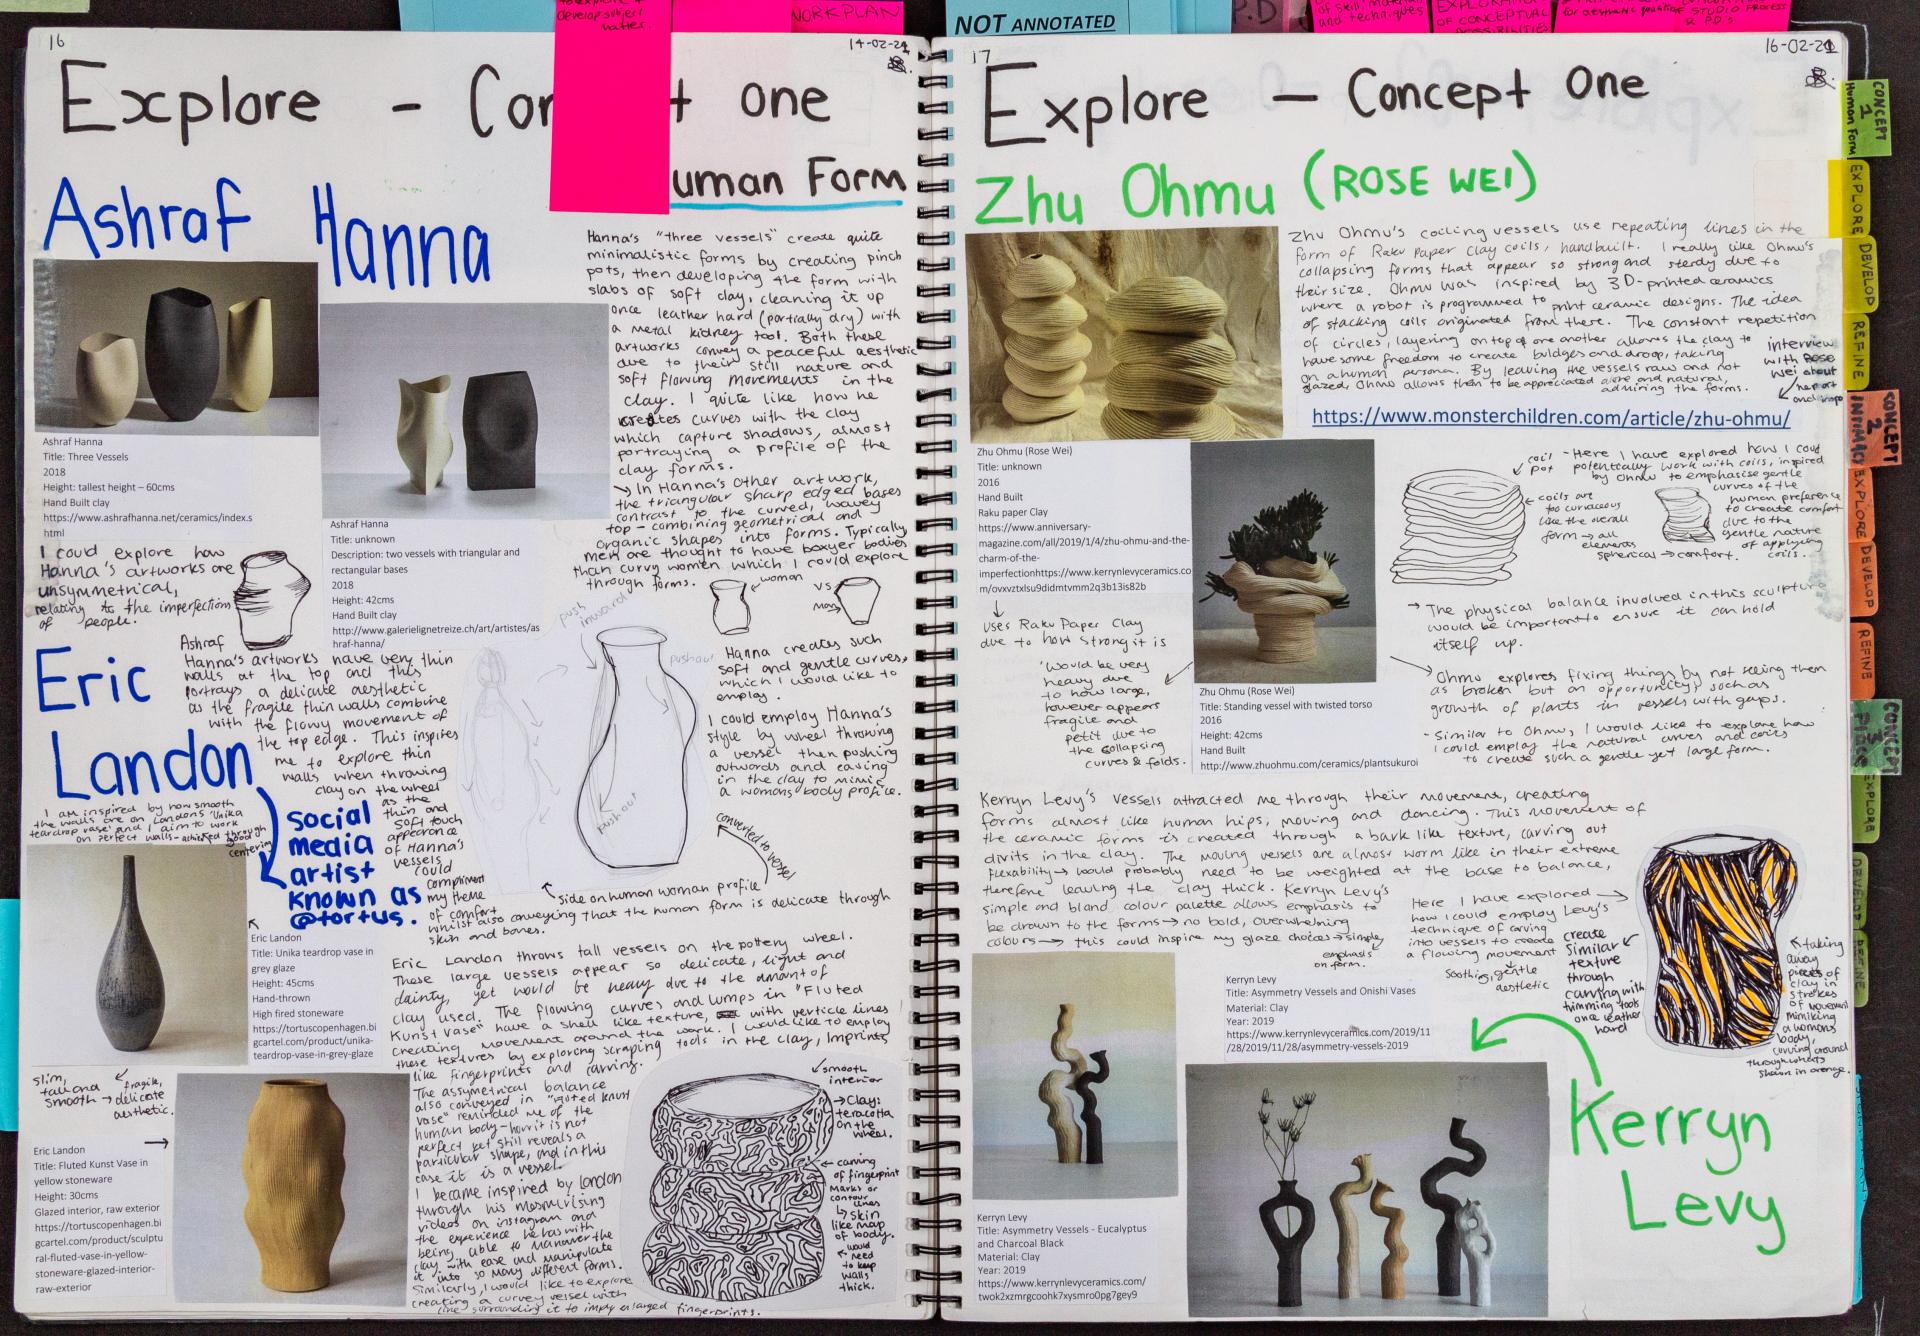 develop subject
matter.
WORKPLAN
NOT ANNOTATED
P.D
of skill, materials
and techniques
EXPLORATION
OF CONCEPTUAL
POSSIBILITIES
STUDIO PROCESS
& P.D's
16
14-02-21
Explore - Con t one
uman Form
Ashraf Hanna
Hanna's "three vessels" create quite
minimalistic forms by creating pinch
pots, then developing the form with
slabs of soft clay, cleaning it up
once leather hard (partially dry) with
a metal kidney tool. Both these
artworks convey a peaceful aesthetic
due to their still nature and
soft flowing movements in the
clay. I quite like how he
creates curves with the clay
which capture shadows, almost
portraying a profile of the
clay forms.
→ In Hanna's other artwork,
the triangular sharp edged bases
contrast to the curved, wavey
top - combining geometrical and
organic shapes into forms. Typically,
men are thought to have boxyer bodies
than curvy women which I could explore
through forms.
woman
vs
man
Ashraf Hanna
Title: Three Vessels
2018
Height: tallest height – 60cms
Hand Built clay
https://www.ashrafhanna.net/ceramics/index.s
html
Ashraf Hanna
Title: unknown
Description: two vessels with triangular and
rectangular bases
2018
Height: 42cms
Hand Built clay
http://www.galerielignetreize.ch/art/artistes/as
hraf-hanna/
I could explore how
Hanna's artworks are
unsymmetrical,
relating to the imperfections
of people.
Ashraf
Hanna's artworks have very thin
walls at the top and this
portrays a delicate aesthetic
as the fragile thin walls combine
with the flowy movement of
the top edge. This inspires
me to explore thin
walls when throwing
clay on the wheel
as the
thin and
soft touch
appearance
of Hanna's
vessels
could
compliment
my theme
of comfort
whilst also conveying that the human form is delicate through
skin and bones.
push
inward
push out
push out
Hanna creates such
soft and gentle curves,
which I would like to
employ.
I could employ Hanna's
style by wheel throwing
a vessel then pushing
outwards and caving
in the clay to mimic
a womans body profile.
converted to vessel
side on human woman profile
Eric
Landon
I am inspired by how smooth
the walls are on Landon's 'Unika
teardrop vase' and I aim to work
on perfect walls - achieved through
good
centering
social
media
artist
known as
@tortus.
Eric Landon
Title: Unika teardrop vase in
grey glaze
Height: 45cms
Hand-thrown
High fired stoneware
https://tortuscopenhagen.bi
gcartel.com/product/unika-
teardrop-vase-in-grey-glaze
slim,
tall and
smooth → fragile,
delicate
aesthetic.
Eric Landon
Title: Fluted Kunst Vase in
yellow stoneware
Height: 30cms
Glazed interior, raw exterior
https://tortuscopenhagen.bi
gcartel.com/product/sculptu
ral-fluted-vase-in-yellow-
stoneware-glazed-interior-
raw-exterior
Eric Landon throws tall vessels on the pottery wheel.
These large vessels appear so delicate, light and
dainty, yet would be heavy due to the amount of
clay used. The flowing curves and lumps in "Fluted
Kunst vase" have a shell like texture, with verticle lines
creating movement around the work. I would like to employ
these textures by exploring scraping tools in the clay, imprints
like fingerprints and carving.
The assymetrical balance
also conveyed in "Fluted Kunst
vase" reminded me of the
human body - how it is not
perfect yet still reveals a
particular shape, and in this
case it is a vessel.
I became inspired by Landon
through his mesmerising
videos on instagram and
the experience he has with
being able to maneuver the
clay with ease and manipulate
it into so many different forms.
Similarly, I would like to explore
creating a curvey vessel with
line surrounding it to imply enlarged fingerprints.
smooth
interior
→ Clay:
teracotta
on the
wheel.
carving
of fingerprint
marks or
contour
lines
↳ skin
like map
of body.
would
need
to keep
walls
thick.
17
16-02-21
Explore — Concept one
Zhu Ohmu (ROSE WEI)
Zhu Ohmu's coiling vessels use repeating lines in the
form of Raku Paper Clay coils, handbuilt. I really like Ohmu's
collapsing forms that appear so strong and sterdy due to
their size. Ohmu was inspired by 3D-printed ceramics
where a robot is programmed to print ceramic designs. The idea
of stacking coils originated from there. The constant repetition
of circles, layering on top of one another allows the clay to
have some freedom to create buldges and droop, taking
on a human persona. By leaving the vessels raw and not
glazed, Ohmu allows them to be appreciated and natural,
admiring the forms.
interview
with Rose
Wei about
her art
https://www.monsterchildren.com/article/zhu-ohmu/
Zhu Ohmu (Rose Wei)
Title: unknown
2016
Hand Built
Raku paper Clay
https://www.anniversary-
magazine.com/all/2019/1/4/zhu-ohmu-and-the-
charm-of-the-
imperfectionhttps://www.kerrynlevyceramics.co
m/ovxvztxlsu9didmtvmm2q3b13is82b
uses Raku Paper Clay
due to how strong it is
'would be very
heavy due
to how large,
however appears
fragile and
petit due to
the collapsing
curves & folds.
Zhu Ohmu (Rose Wei)
Title: Standing vessel with twisted torso
2016
Height: 42cms
Hand Built
http://www.zhuohmu.com/ceramics/plantsukuroi
coil
pot
- Here I have explored how I could
potentially work with coils, inspired
by Ohmu to emphasise gentle
curves of the
human preference
to create comfort
due to the
gentle nature
of applying
coils.
coils are
too curvaceous
like the overall
form → all
elements
spherical → comfort.
→ The physical balance involved in this sculpture
would be important to ensure it can hold
itself up.
Ohmu explores fixing things by not seeing them
as broken but an opportunity, such as
growth of plants in vessels with gaps.
- Similar to Ohmu, I would like to explore how
I could employ the natural curves and coils
to create such a gentle yet large form.
Kerryn Levy's vessels attracted me through their movement, creating
forms almost like human hips, moving and dancing. This movement of
the ceramic forms is created through a bark like texture, carving out
divits in the clay. The moving vessels are almost worm like in their extreme
flexability → would probably need to be weighted at the base to balance,
therefore leaving the clay thick. Kerryn Levy's
simple and bland colour palette allows emphasis to
be drawn to the forms → no bold, overwhelming
colours → this could inspire my glaze choices → simple,
emphasis
on form.
Here I have explored
how I could employ Levy's
technique of carving
into vessels to create
a flowing movement
soothing, gentle
aesthetic
create
similar
texture
through
carving with
trimming tools
once leather
hard
taking
away
pieces of
clay in
strokes
of movement
mimiking
a womans
body,
curving around
throughout
shown in orange.
Kerryn Levy
Title: Asymmetry Vessels and Onishi Vases
Material: Clay
Year: 2019
https://www.kerrynlevyceramics.com/2019/11
/28/2019/11/28/asymmetry-vessels-2019
Kerryn
Levy
Kerryn Levy
Title: Asymmetry Vessels - Eucalyptus
and Charcoal Black
Material: Clay
Year: 2019
https://www.kerrynlevyceramics.com/
twok2xzmrgcoohk7xysmro0pg7gey9
CONCEPT
1
Human Form
EXPLORE
DEVELOP
REFINE
CONCEPT
2
INTIMACY
EXPLORE
DEVELOP
REFINE
CONCEPT
3
EXPLORE
DEVELOP
REFINE